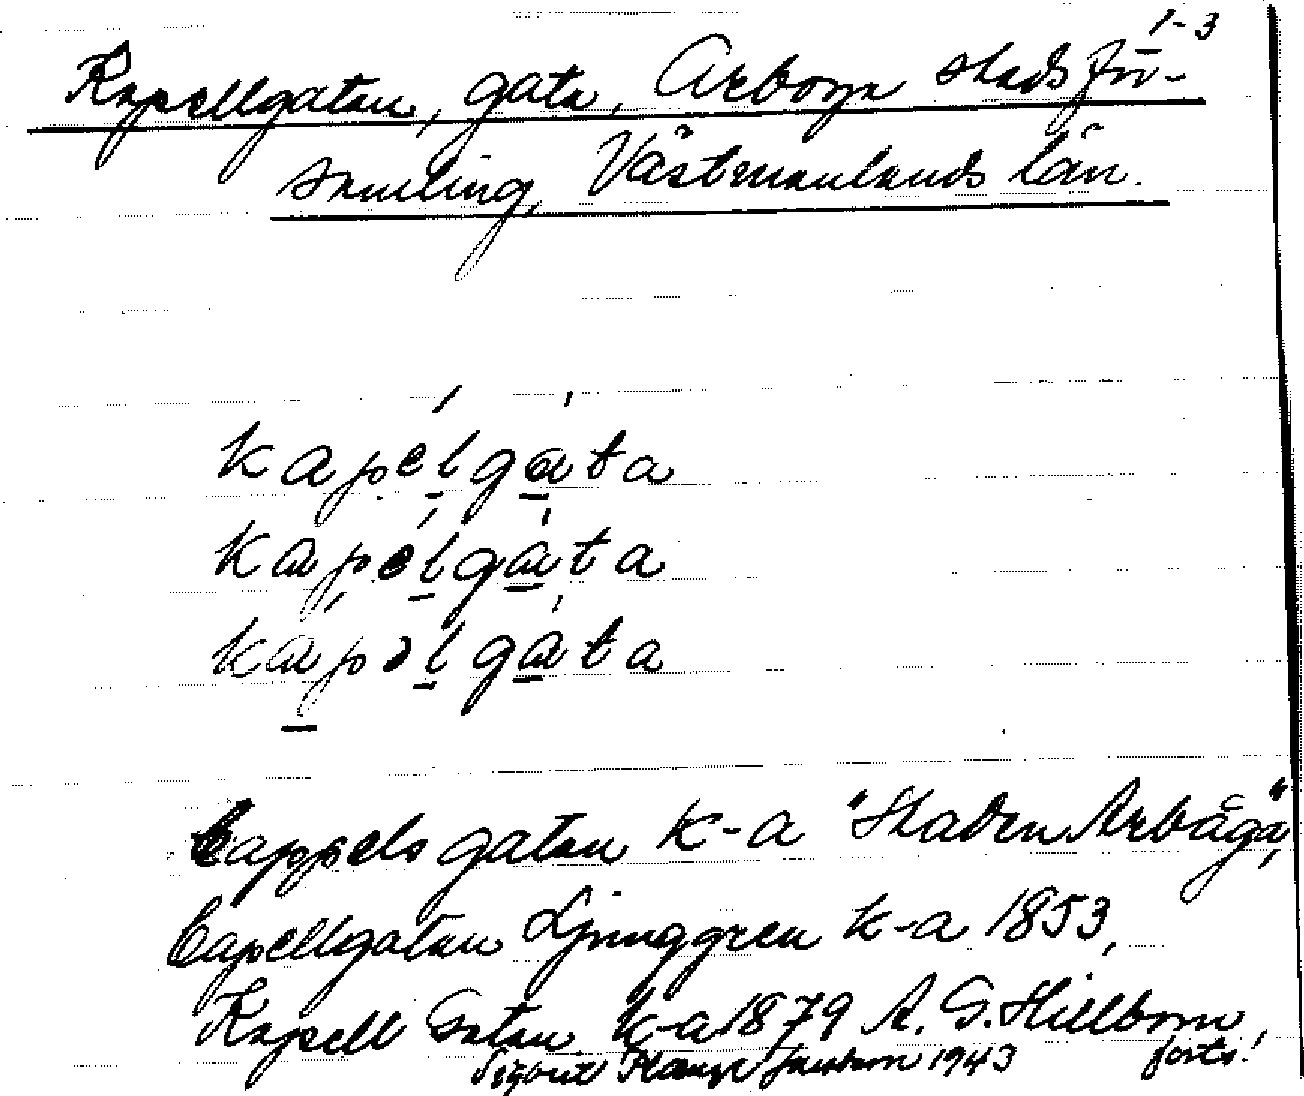 1-3
Kapellgatan, gata, Arboga stadsför-
samling, Västmanlands län.
kapelgata
kapelgata
kapəlgata
Cappels gatan k-a "Staden Arbåga",
Capellgatan Ljunggren k-a 1853,
Kapell Gatan k-a 1879 A. G. Hillbom,
Sigurd 1943 forts!